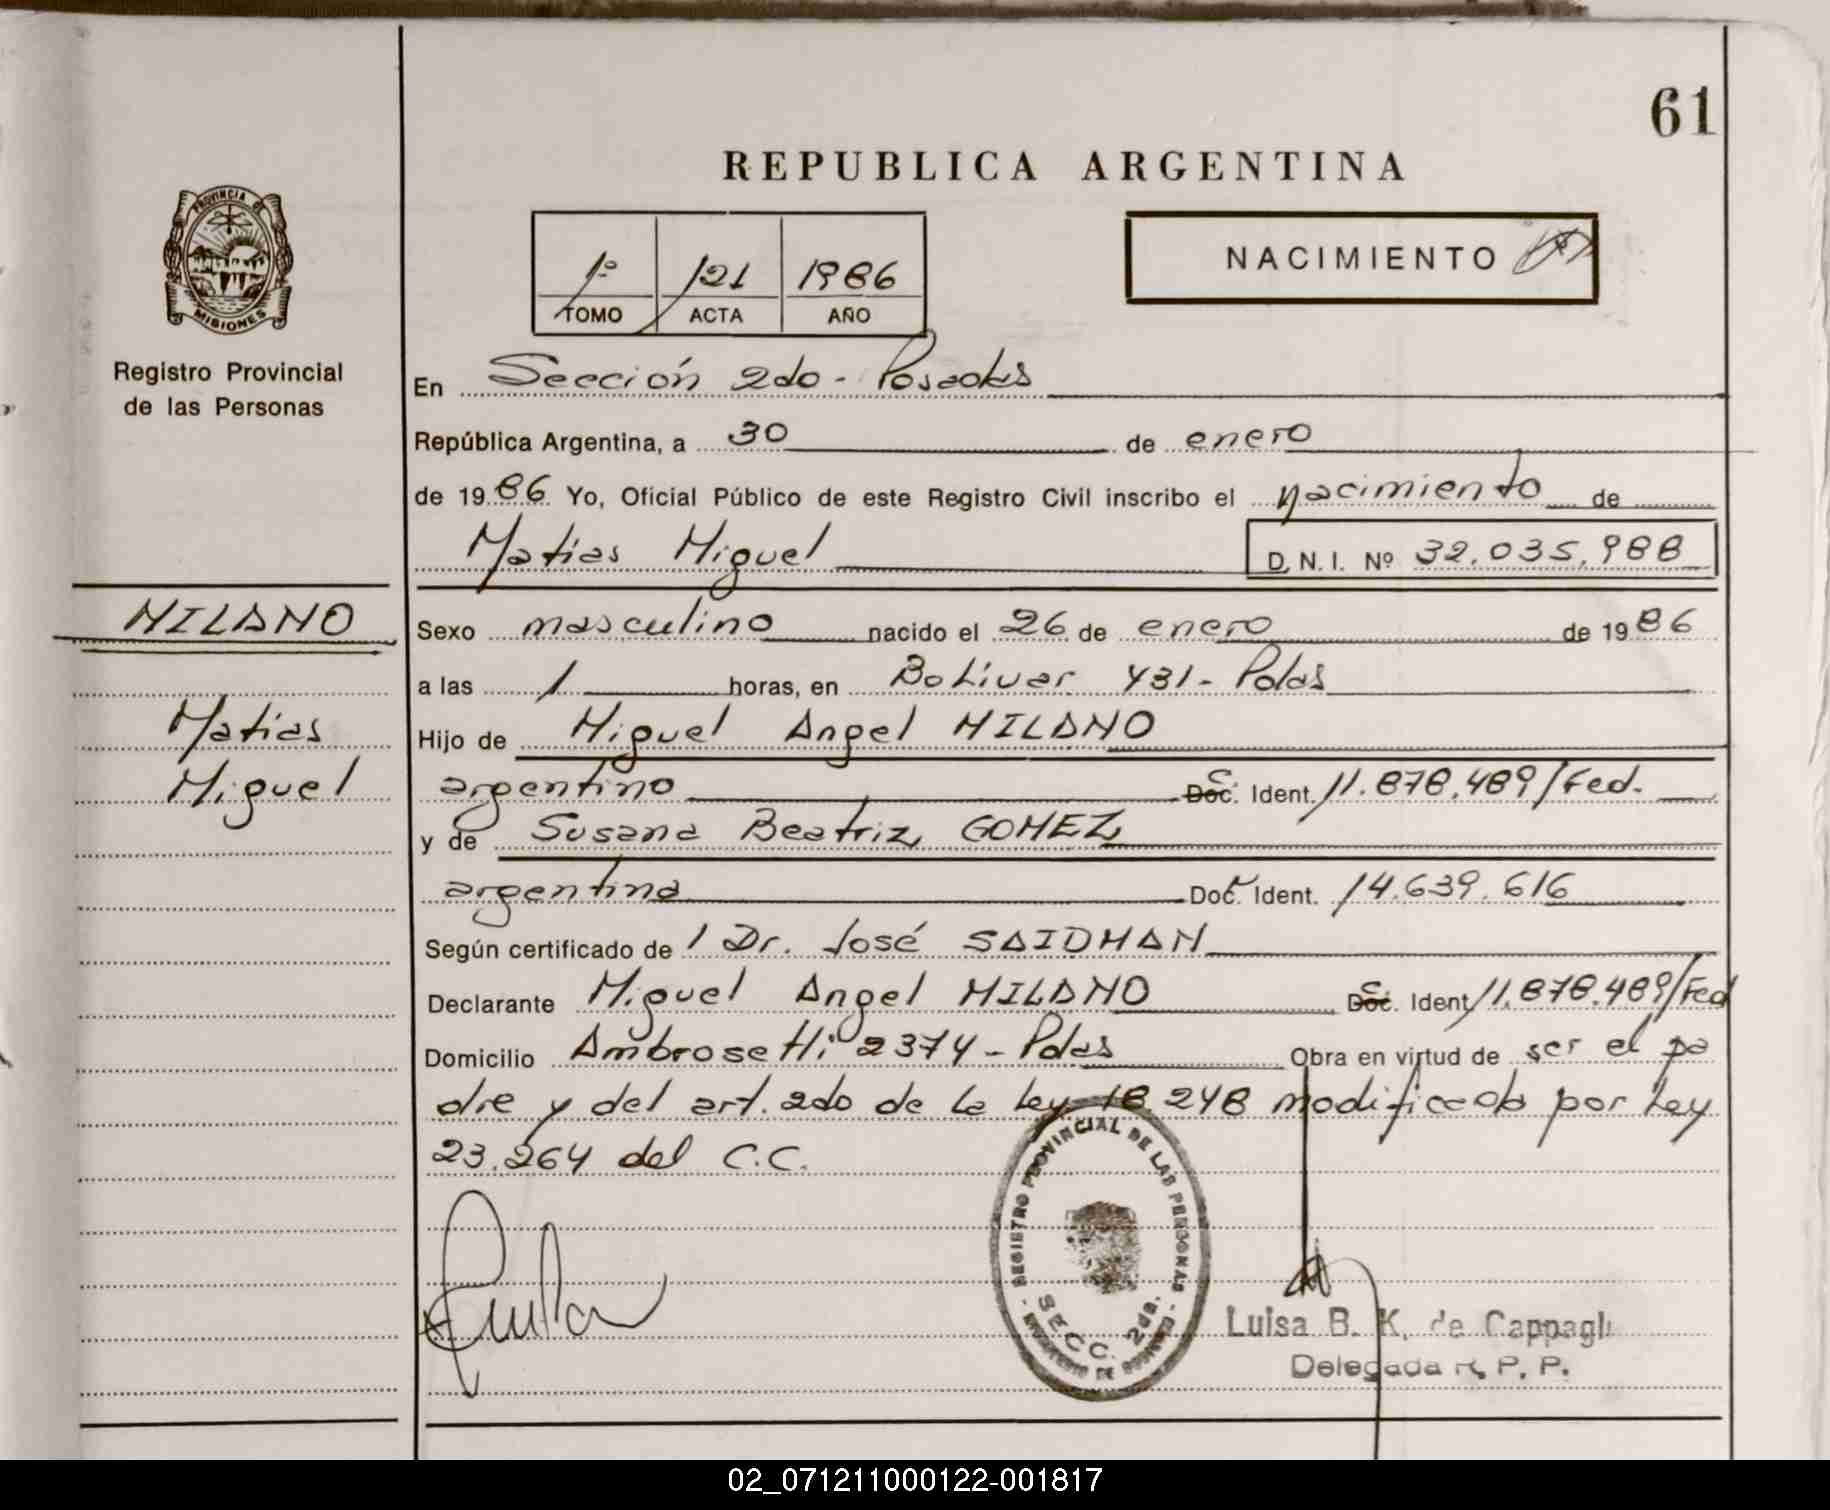 61
REPUBLICA ARGENTINA
PROVINCIA DE
MISIONES
Registro Provincial
de las Personas
1º 121 1986
TOMO ACTA AÑO
NACIMIENTO
En Sección 2do - Posadas
República Argentina, a 30 de enero
de 1986 Yo, Oficial Público de este Registro Civil inscribo el nacimiento de
Matías Miguel D. N. I. Nº 32.035.988
MILANO
Sexo masculino nacido el 26 de enero de 1986
a las 1 horas, en Bolívar 431 - Pdas
Matías
Hijo de Miguel Angel MILANO
Miguel
argentino Doc. C. Ident. 11.878.489/Fed.
y de Susana Beatriz GOMEZ
argentina Doc. Ident. 14.639.616
Según certificado de 1 Dr. José SAIDMAN
Declarante Miguel Angel MILANO Doc. C. Ident. 11.878.489/Fed
Domicilio Ambrosetti 2374 - Pdas Obra en virtud de ser el pa
dre y del art. 2do de la Ley 18.248 modificada por Ley
23.264 del C.C.
REGISTRO PROVINCIAL DE LAS PERSONAS
SECC. 2da.
Luisa B. K. de Cappagli
Delegada R. P. P.
02_071211000122-001817